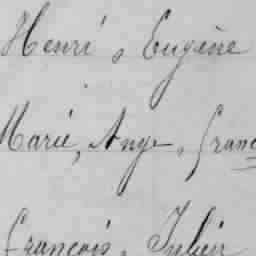 Henri, Eugène
Marie, Ange, Franç
François, Julien